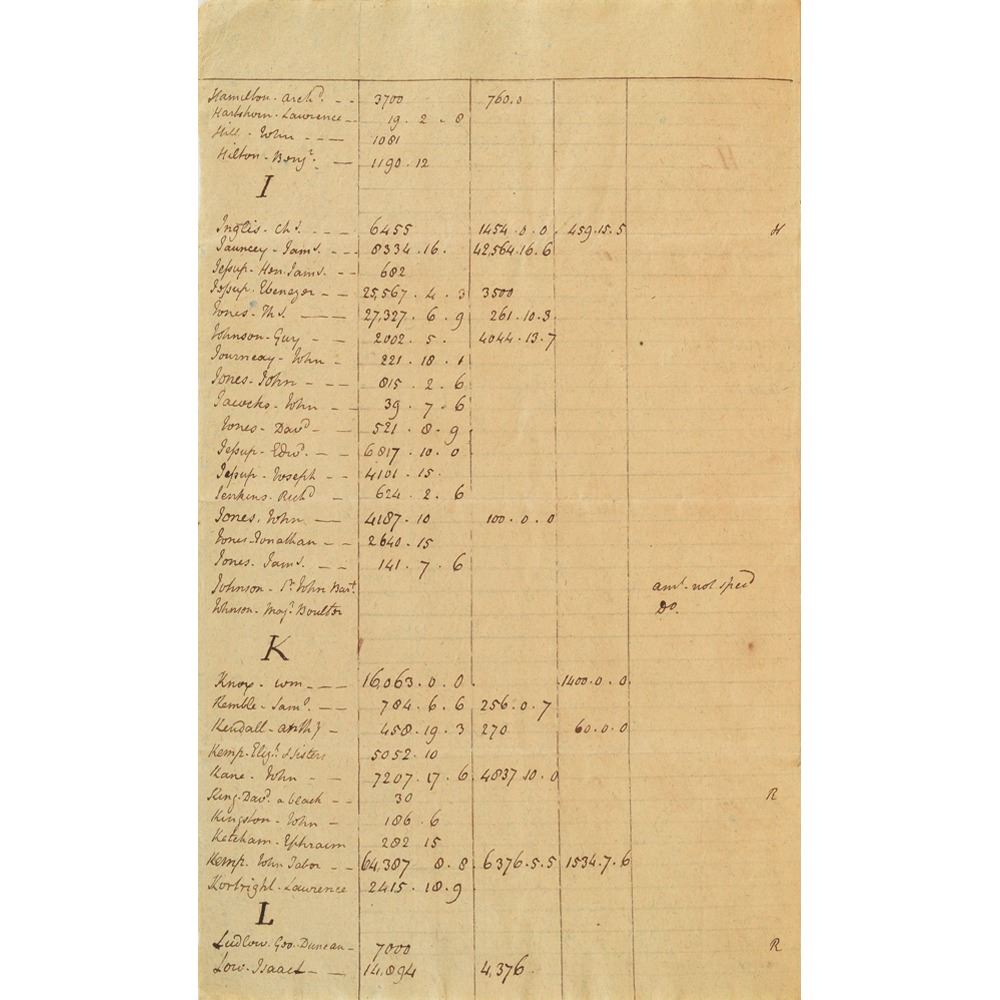 Hamilton. Archd. - - 3700 760.0
Hartshorn. Lawrence - - 19. 2. 8
Hill. John - - - - 1081
Hilton. Benjn. - 1190. 12
I
Inglis. Chs. - - - 6455 1454. 0. 0. 459.15.5 H
Jauncey. Jams. - - - 8334. 16. 42,564.16.6
Jessup. Hen. Jams. - - 682
Jessup. Ebenezer - - 25,567. 4. 3 3500
Jones. Ths. - - - 27,327. 6. 9 261.10.3.
Johnson. Guy - - 2002. 5. 4044.13.7
Journeay. John - 221. 18. 1
Jones. John - - - 815. 2. 6
John - - 39. 7. 6
Jones. Davd. - - 521. 8. 9.
Jessup. Edwd. - - 6817. 10. 0
Jessup. Joseph - - 4101. 15.
Jenkins. Richd. - 624. 2. 6
Jones. John - 4187. 10 100. 0. 0
Jones. Jonathan - - 2640. 15
Jones. Jams. - - 141. 7. 6
Johnson. Sr. John Bart. amt. not specd
Johnson. Majr. Boulter Do.
K
Knox. Wm. - - - 16,063. 0. 0. 1400. 0. 0.
Kemble. Saml. - - 784. 6. 6 256. 0. 7
Kendall. Anthy - 458. 19. 3 270 60. 0. 0
Kemp. Elizh. & Sisters 5052. 10
Kane. John - - 7207. 17. 6. 4837 10. 0
King. Davd. a black - - 30 R
Kingston. John - 186. 6
Ketcham. Ephraim 282 15
Kemp. John Tabor - - 64,387 8. 8 6376.5.5 1534.7.6
Kortright. Lawrence 2415. 18. 9
L
Ludlow. Geo. Duncan - 7000 R
Low. Isaac - - 14,894 4,376.